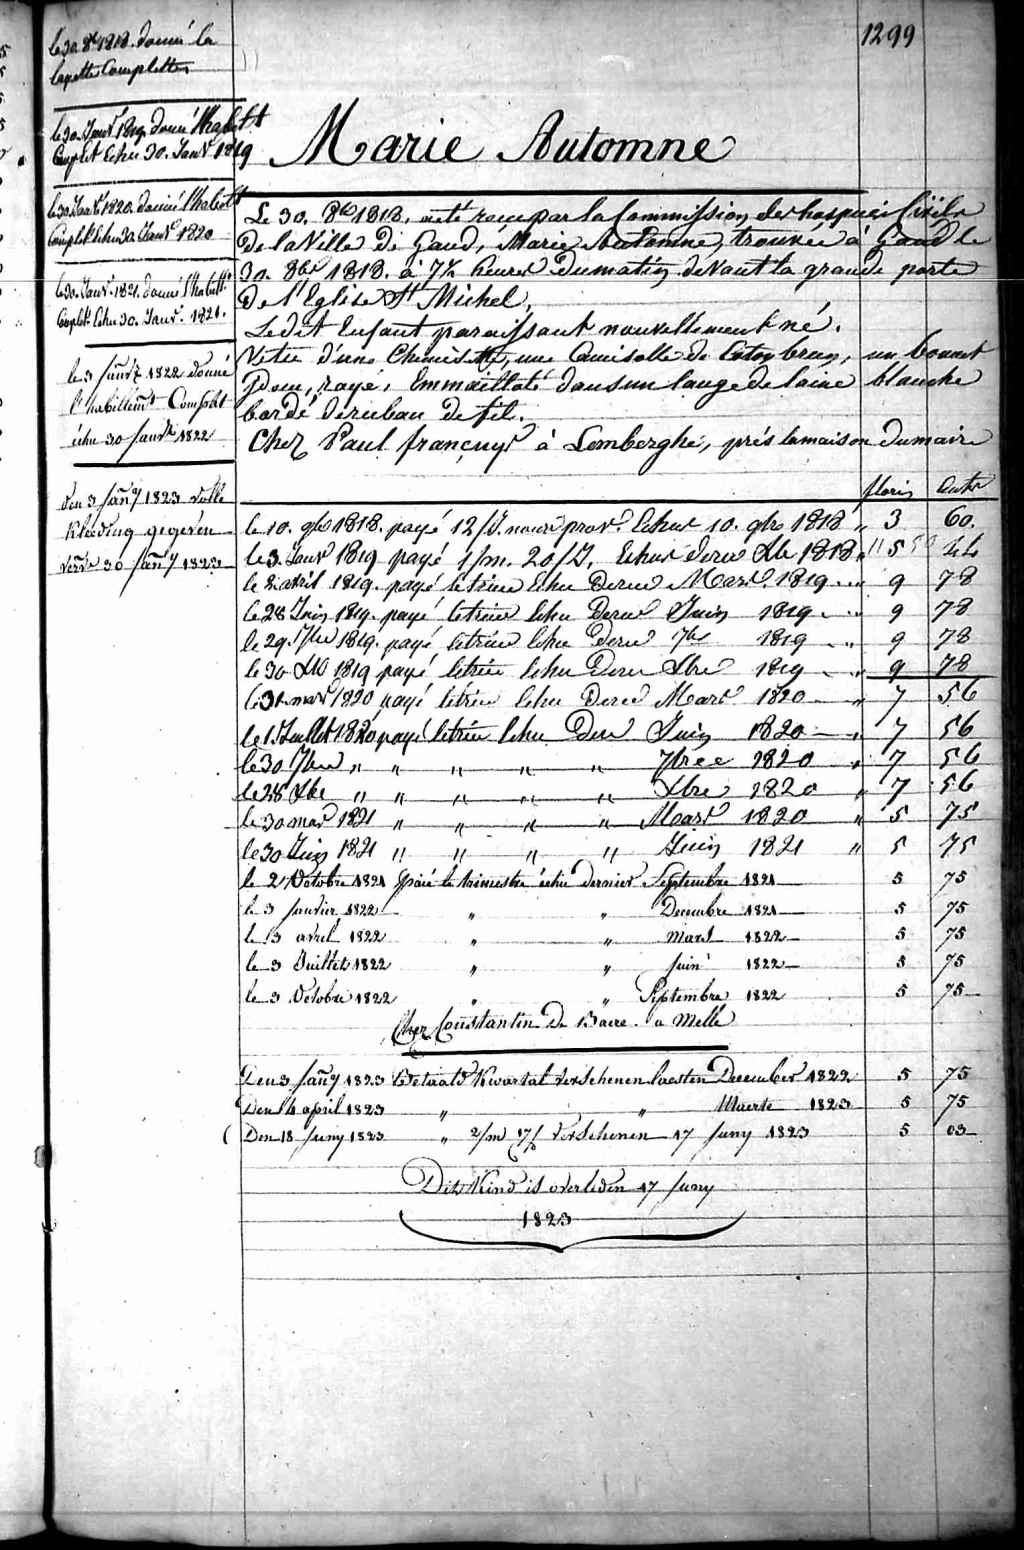 1299
le 30. 8bre 1818. donné la
layette Complette
le 30. Janvr 1819 donné l'habillt
Complet Echu 30. Janvr 1819
le 30 Janvr 1820. donné l'habillt
Complet Echu 30. Janvr 1820
le 30. Janvr. 1821. donné l'habillt
Complet Echu 30. Janvr. 1821.
le 3 Janvr 1822 donné
l'habillemt Complet
échu 30 Janvr 1822
den 3 Jany 1823 volle
Kleeding gegeven
verve 30 Jany 1823
Marie Automne
Le 30. 8bre 1818. a été reçue par la Commission des hospices Civils
De la Ville de Gand, Marie Automne, trouvée à Gand le
30. 8bre 1818. à 7½ heures Du matin devant la grande porte
De l'Eglise St Michel,
Ledit Enfant paraissant nouvellement né.
Vetue d'une Chemisette, une Camisolle de Coton brun, un bonnet
Idem, rayé, Emmaillotté dans un lange de laine blanche
bordé de ruban de fil.
Chez Paul françuys à Lemberghe, près la maison du maire
florin cents
le 10. 9bre 1818. payé 12/J. nourr prov. Echus 10. 9bre 1818 " 3 60.
le 3. Janvr 1819 payé 1/m. 20/J. Echus dernr Xbre 1818 " 5 44
le 2 avril 1819. payé letrim Echu dernr Mars 1819 " 9 78
le 28 Juin 1819. payé letrim Echu dernr Juin 1819 " 9 78
le 29. 7bre 1819. payé letrim Echu dernr 7bre 1819 " 9 78
le 30 Xbre 1819 payé letrim Echu dernr Xbre 1819 " 9 78
le 31 mars 1820 payé letrim Echu dernr Mars 1820 " 7 56
le 1 Juillet 1820 payé letrim Echu dernr Juin 1820 " 7 56
le 30 7bre " " " " " 7bree 1820 " 7 56
le 28 Xbre " " " " " Xbre 1820 " 7 56
le 30 mars 1821 " " " " Mars 1820 " 5 75
le 30 Juin 1821 " " " " Juin 1821 " 5 75
le 2 Octobre 1821 paié le trimestre échu dernier Septembre 1821 5 75
le 3 Janvier 1822 " " Decembre 1821 5 75
le 3 avril 1822 " " mars 1822 5 75
le 3 Juillet 1822 " " Juin 1822 5 75
le 3 Octobre 1822 " " Septembre 1822 5 75
Chez Constantin De Baere. a Melle
Den 3 Jany 1823 Betaald Kwartal verschenen laesten December 1822 5 75
Den 4 april 1823 " " Maerte 1823 5 75
Den 18 Juny 1823 " 2/m 17/ verschenen 17 Juny 1823 5 03
Dit Kind is overleden 17 Juny
1823